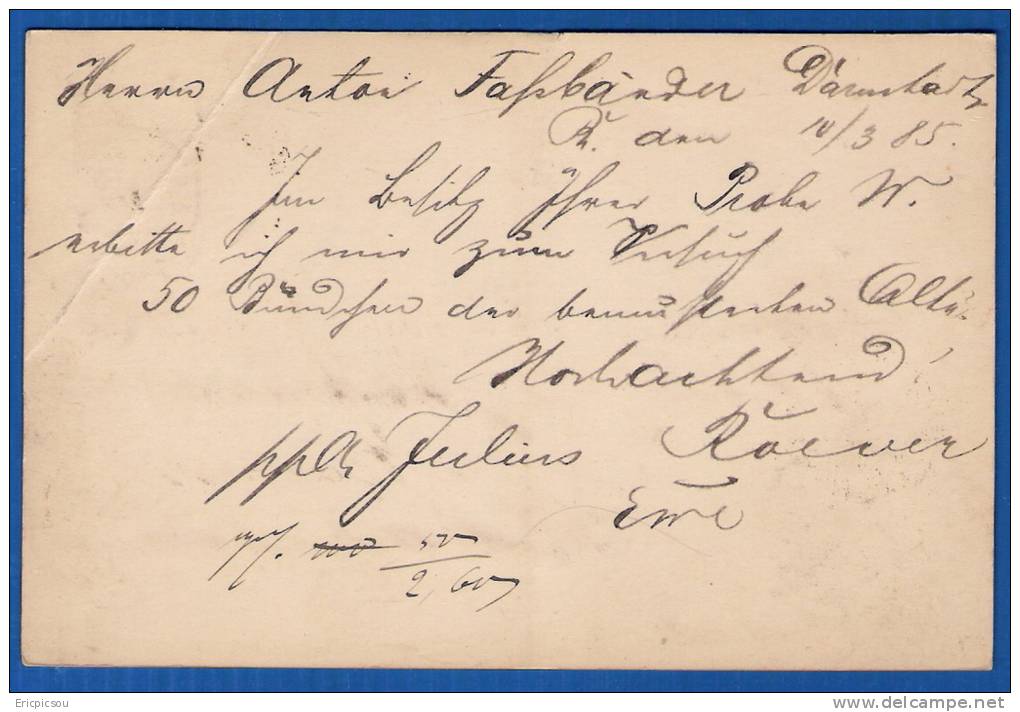 Herrn Anton Faßbänder Darmstadt
R. den 10/3 85.
Im Besitz Ihrer Probe W.
erbitte ich mir zum Versuch
50 Bündchen der bemusterten
Hochachtend!
ppa Julius Roever
Ewe
50
2,60
Ericpicsou
www.delcampe.net